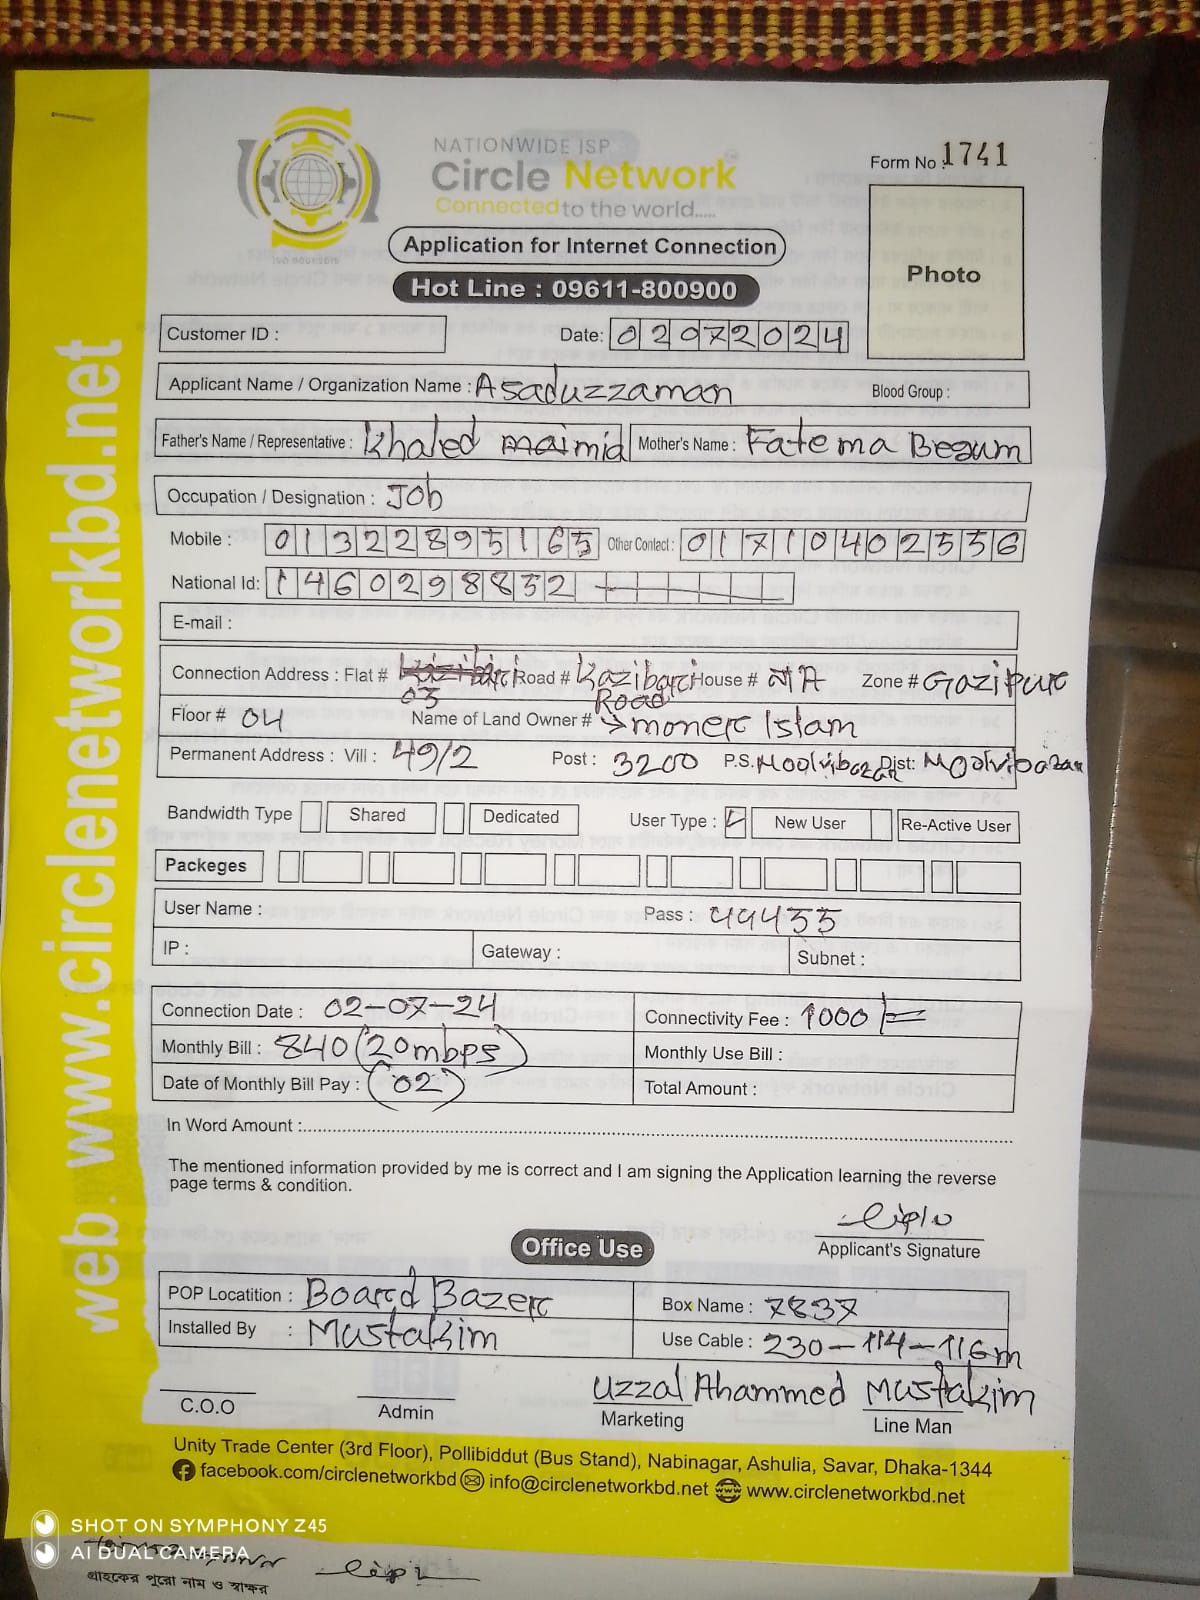 NATIONWIDE ISP
Circle Network
Connected to the world.....
ISO 9001:2015
Form No : 1741
Application for Internet Connection
Hot Line : 09611-800900
Photo
Customer ID :
Date: 02072024
Applicant Name / Organization Name : Asaduzzaman
Blood Group :
Father's Name / Representative : Khaled
Mother's Name : Fatema Begum
Occupation / Designation : Job
Mobile : 01322895165
Other Contact : 01710402556
National Id: 1460298832
E-mail :
Connection Address : Flat # 03 Road # Kazibari Road House # NA Zone # Gazipur
Floor # 04 Name of Land Owner # → moner Islam
Permanent Address : Vill : 49/2 Post : 3200 P.S. Moolvibazar Dist: Moolvibazar
Bandwidth Type Shared Dedicated User Type : New User Re-Active User
Packeges
User Name : Pass : 44455
IP : Gateway : Subnet :
Connection Date : 02-07-24 Connectivity Fee : 1000/=
Monthly Bill : 840 (20mbps) Monthly Use Bill :
Date of Monthly Bill Pay : (02) Total Amount :
In Word Amount :
The mentioned information provided by me is correct and I am signing the Application learning the reverse
page terms & condition.
Applicant's Signature
Office Use
POP Locatition : Board Bazer Box Name : 7837
Installed By : Mustakim Use Cable : 230-114-116m
Uzzal Ahammed Mustakim
C.O.O Admin Marketing Line Man
Unity Trade Center (3rd Floor), Pollibiddut (Bus Stand), Nabinagar, Ashulia, Savar, Dhaka-1344
facebook.com/circlenetworkbd info@circlenetworkbd.net www.circlenetworkbd.net
web : www.circlenetworkbd.net
SHOT ON SYMPHONY Z45
AI DUAL CAMERA
গ্রাহকের পুরো নাম ও স্বাক্ষর